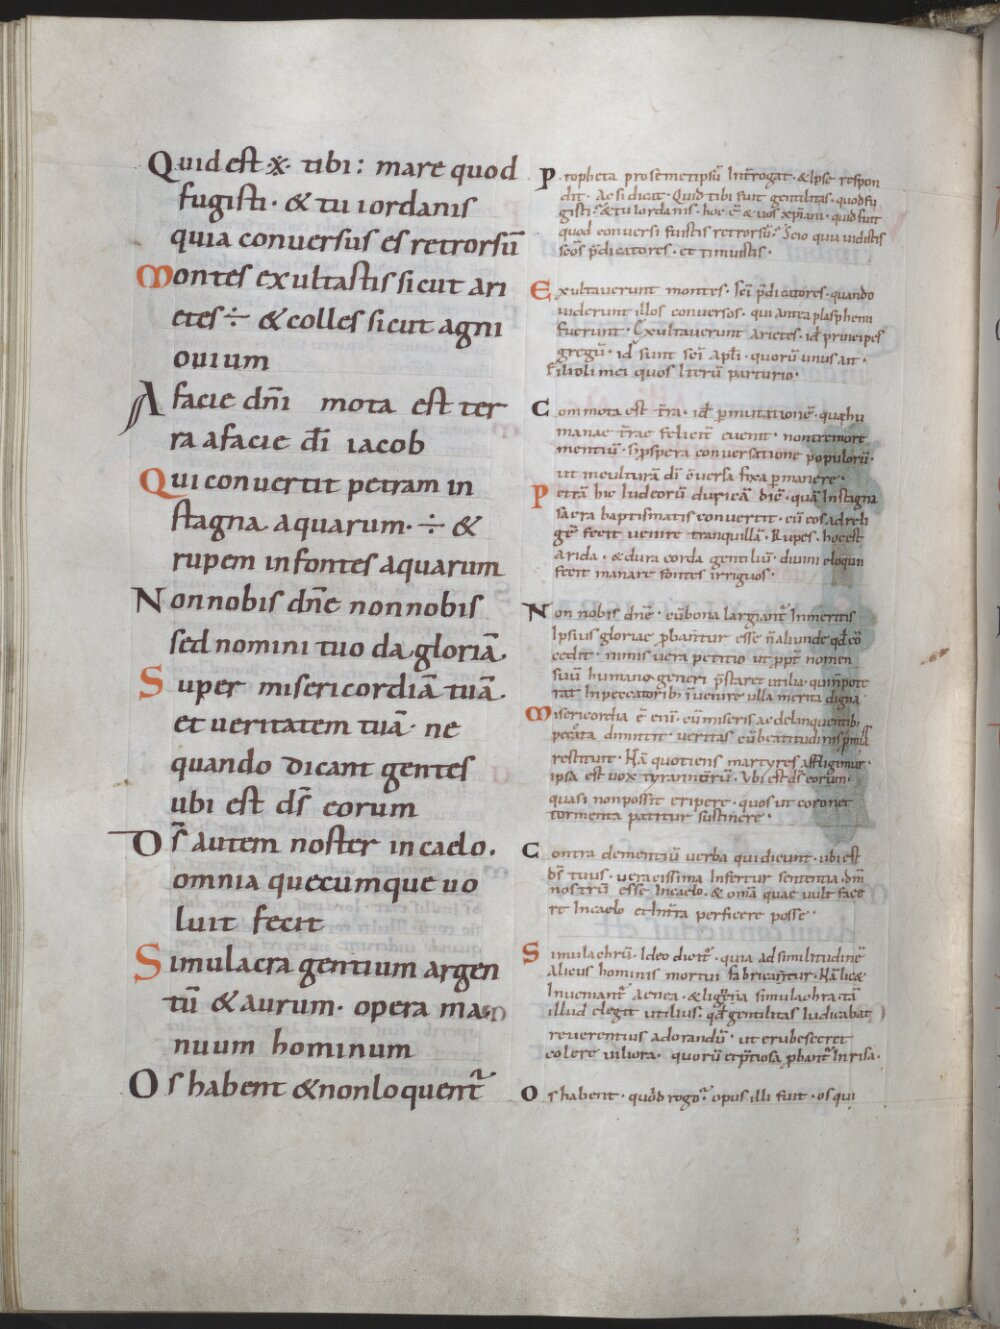 Quid est ·※· tibi: mare quod
fugisti· & tu iordanis
quia conuersus es retrorsū
Montes exultastis sicut ari
etes ÷ & colles sicut agni
ouium
A facie dn̄i mota est ter
ra afacie dī iacob
Qui conuertit petram in
stagna aquarum· ÷ &
rupem infontes aquarum
Non nobis dn̄e non nobis
sed nomini tuo da gloriā.
Super misericordiā tuā.
et ueritatem tuā· ne
quando dicant gentes
ubi est ds̄ eorum
Ds̄ autem noster in caelo.
omnia quecumque uo
luit fecit
Simulacra gentium argen
tū & aurum· opera ma
nuum hominum
Os habent & non loquent̄
Propheta prosemetipsū Int̄rogat· & Ipse respon
dit· Ac si dicat· Quid tibi fuit gentilitas· quod fu
gisti? & tu Iordanis· hoc ē & uos xp̄iani· quid fuit
quod conuersi fuistis retrorsū? Scio quia uidistis
sc̄os p̄dicatores· et timuistis·
Exultauerunt montes· sc̄i p̄dicatores· quando
uiderunt illos conuersos· qui antea plasphemi
fuerunt· Exultauerunt arietes· id̄ principes
gregū· id̄ sunt sc̄i apl̄i· quorū unus ait·
Filioli mei quos Iterū parturio·
Commota est t̄ra· id̄ p̄mutatione· quę hu
manae t̄rae feliciť euenit· non tremore
mentiū· s; p̄spera conuersatione populorū·
ut incultura dī ōuersa fixa p̄manere·
Petrā hic Iudeorū duriciā dic̄· quā In stagna
sacra baptismatis conuertit· cū eos ad reli
gē fecit uenire tranquillā· Rupes· hoc est
arida· & dura corda gentiliū· diuini eloquii
fecit manare fontes irriguos·
Non nobis dn̄e· cū bona largiant̄ Inmeritis
Ipsius gloriae p̄bantur esse n̄ aliunde qđ cō
cedit· nimis uera petitio ut p̄pt̄ nomen
suū humano generi p̄staret utilia· qui n̄ pote
rat In peccatorib; īuenire ulla merita digna
Misericordia ē enī· cū miseris ac delinquentib;
peccata dimittit· ueritas cū beatitudinis p̄mia
restituit· Nā quotiens martyres affligimur·
ipsa est uox tyrannorū· Ubi est ds̄ eorum·
quasi non posset eripere· quos ut coronet
tormenta patitur sustinere·
Contra dementiū uerba qui dicunt· ubi est
ds̄ tuus· ueracissima Insertur sententia· dn̄m
nostrū esse Incaelo· & om̄a quae uult face
re Incaelo et Int̄ra perficere posse·
Simulachrū· Ideo dicit̄· quia ad similitudinē
alicus hominis mortui fabricantur· Nā licæ
Inueniant̄ aenea· & lignea simulachra· tā
illud elegit utilius· qđ gentilitas Iudicabat
reuerentius adorandū· ut erubesceret
colere uiliora· quorū et p̄tiosa p̄bant̄ Inrisa·
Os habent· quod rogo? opus illi fuit· os qui